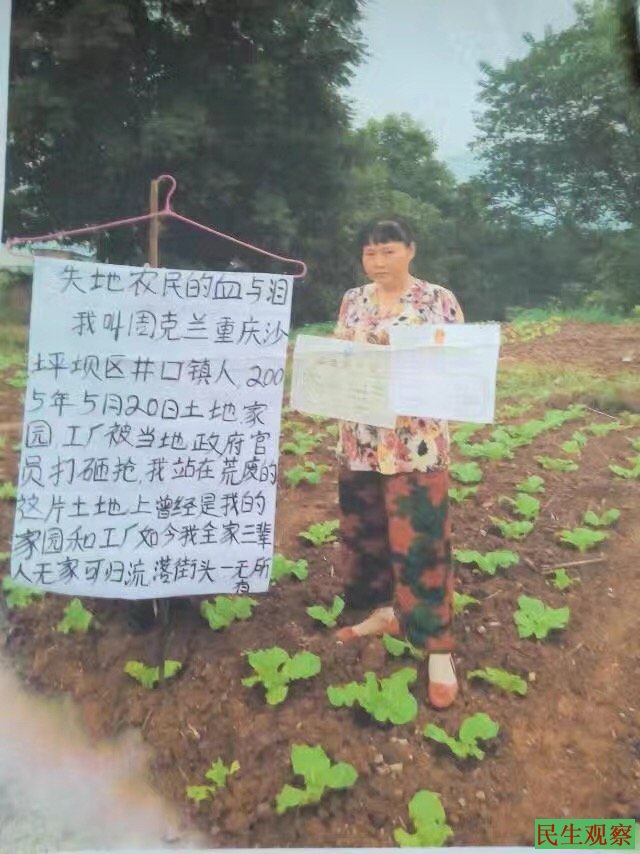 失地农民的血与泪
我叫周克兰重庆沙
坪坝区井口镇人200
5年5月20日土地家
园工厂被当地政府官
员打砸抢,我站在荒废的
这片土地上曾经是我的
家园和工厂如今我全家三辈
人无家可归流落街头一无所
有
民生观察